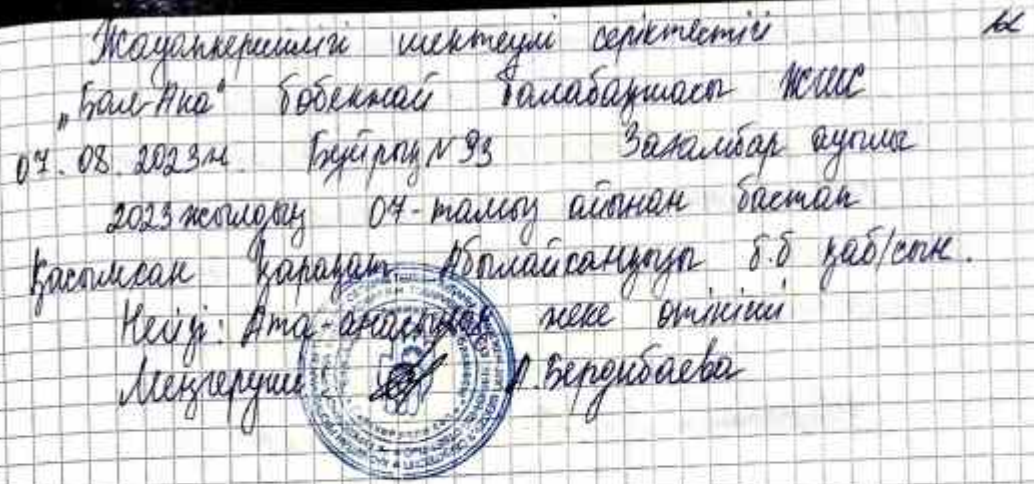 Жауапкершілігі шектеулі серіктестігі
„Бал-Ана" бөбекжай балабақшасы ЖШС
07. 08. 2023ж. Бұйрық N 93 Зағамбар ауылы
2023 жылдың 07-тамыз айынан бастап
Қасымхан Қарақат Абылайханқызы б.б қаб/сын.
Негізі: Ата-анасының жеке өтініші
Меңгеруші А.Бердибаева